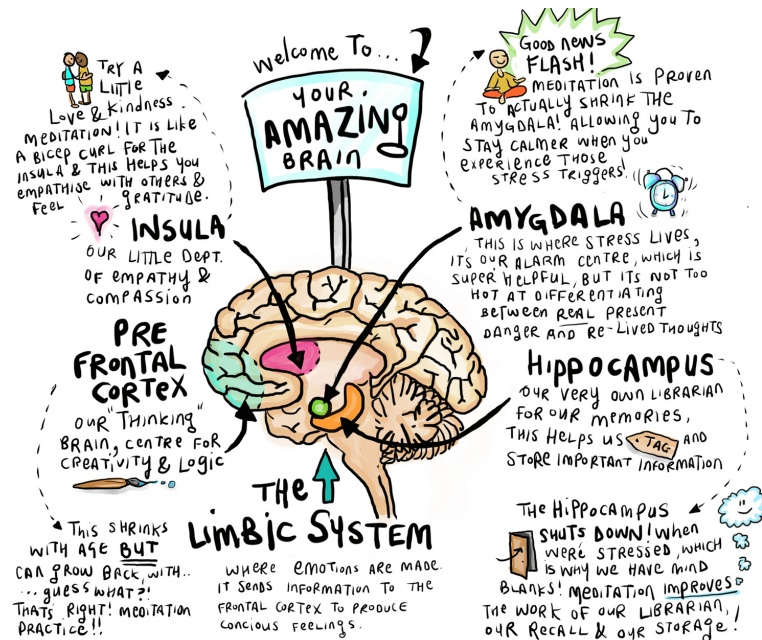 welcome To...
YOUR.
AMAZING
BRAIN
TRY A
LITTLE
LOVE & KINDNESS.
MEDITATION! IT IS LIKE
A BICEP CURL FOR THE
INSULA & THIS HELPS YOU
EMPATHISE WITH OTHERS &
FEEL GRATITUDE.
INSULA
OUR LITTLE DEPT.
OF EMPATHY &
COMPASSION
PRE
FRONTAL
CORTEX
OUR "THINKING"
BRAIN, CENTRE FOR
CREATIVITY & LOGIC
THIS SHRINKS
WITH AGE BUT
CAN GROW BACK, WITH..
... GUESS WHAT?!
THATS RIGHT! MEDITATION
PRACTICE!!
THE
LIMBIC SYSTEM
WHERE EMOTIONS ARE MADE.
IT SENDS INFORMATION TO THE
FRONTAL CORTEX TO PRODUCE
CONCIOUS FEELINGS.
GOOD NEWS
FLASH!
MEDITATION IS PROVEN
TO ACTUALLY SHRINK THE
AMYGDALA! ALLOWING YOU TO
STAY CALMER WHEN YOU
EXPERIENCE THOSE
STRESS TRIGGERS!
AMYGDALA
THIS IS WHERE STRESS LIVES,
ITS OUR ALARM CENTRE, WHICH IS
SUPER HELPFUL, BUT ITS NOT TOO
HOT AT DIFFERENTIATING
BETWEEN REAL PRESENT
DANGER AND RE-LIVED THOUGHTS
HIPPOCAMPUS
OUR VERY OWN LIBRARIAN
FOR OUR MEMORIES,
THIS HELPS US TAG AND
STORE IMPORTANT INFORMATION
THE HIPPOCAMPUS
SHUTS DOWN! WHEN
WERE STRESSED, WHICH
IS WHY WE HAVE MIND
BLANKS! MEDITATION IMPROVES
THE WORK OF OUR LIBRARIAN,
OUR RECALL & OUR STORAGE!